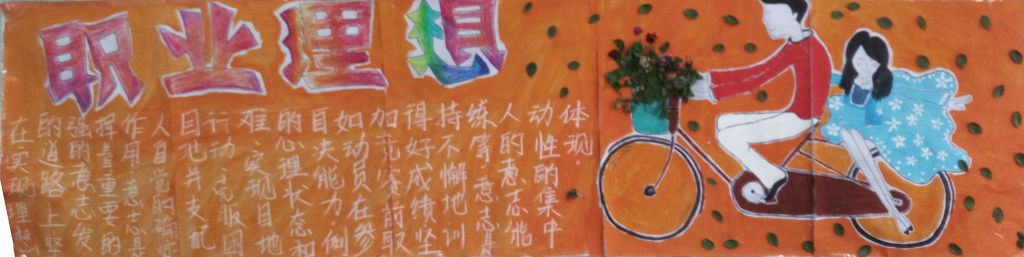 职业理想
在实现理
的道路上坚
强的意志发
挥着重要的
作用意志是
人自觉的确
目地并支配
行动克服困
难实现目地
的心理状态和
目决能力例
如动员在参
加比赛前取
得好成绩坚
持不懈地训
练等意志是
人的意志能
动性的集中
体现。